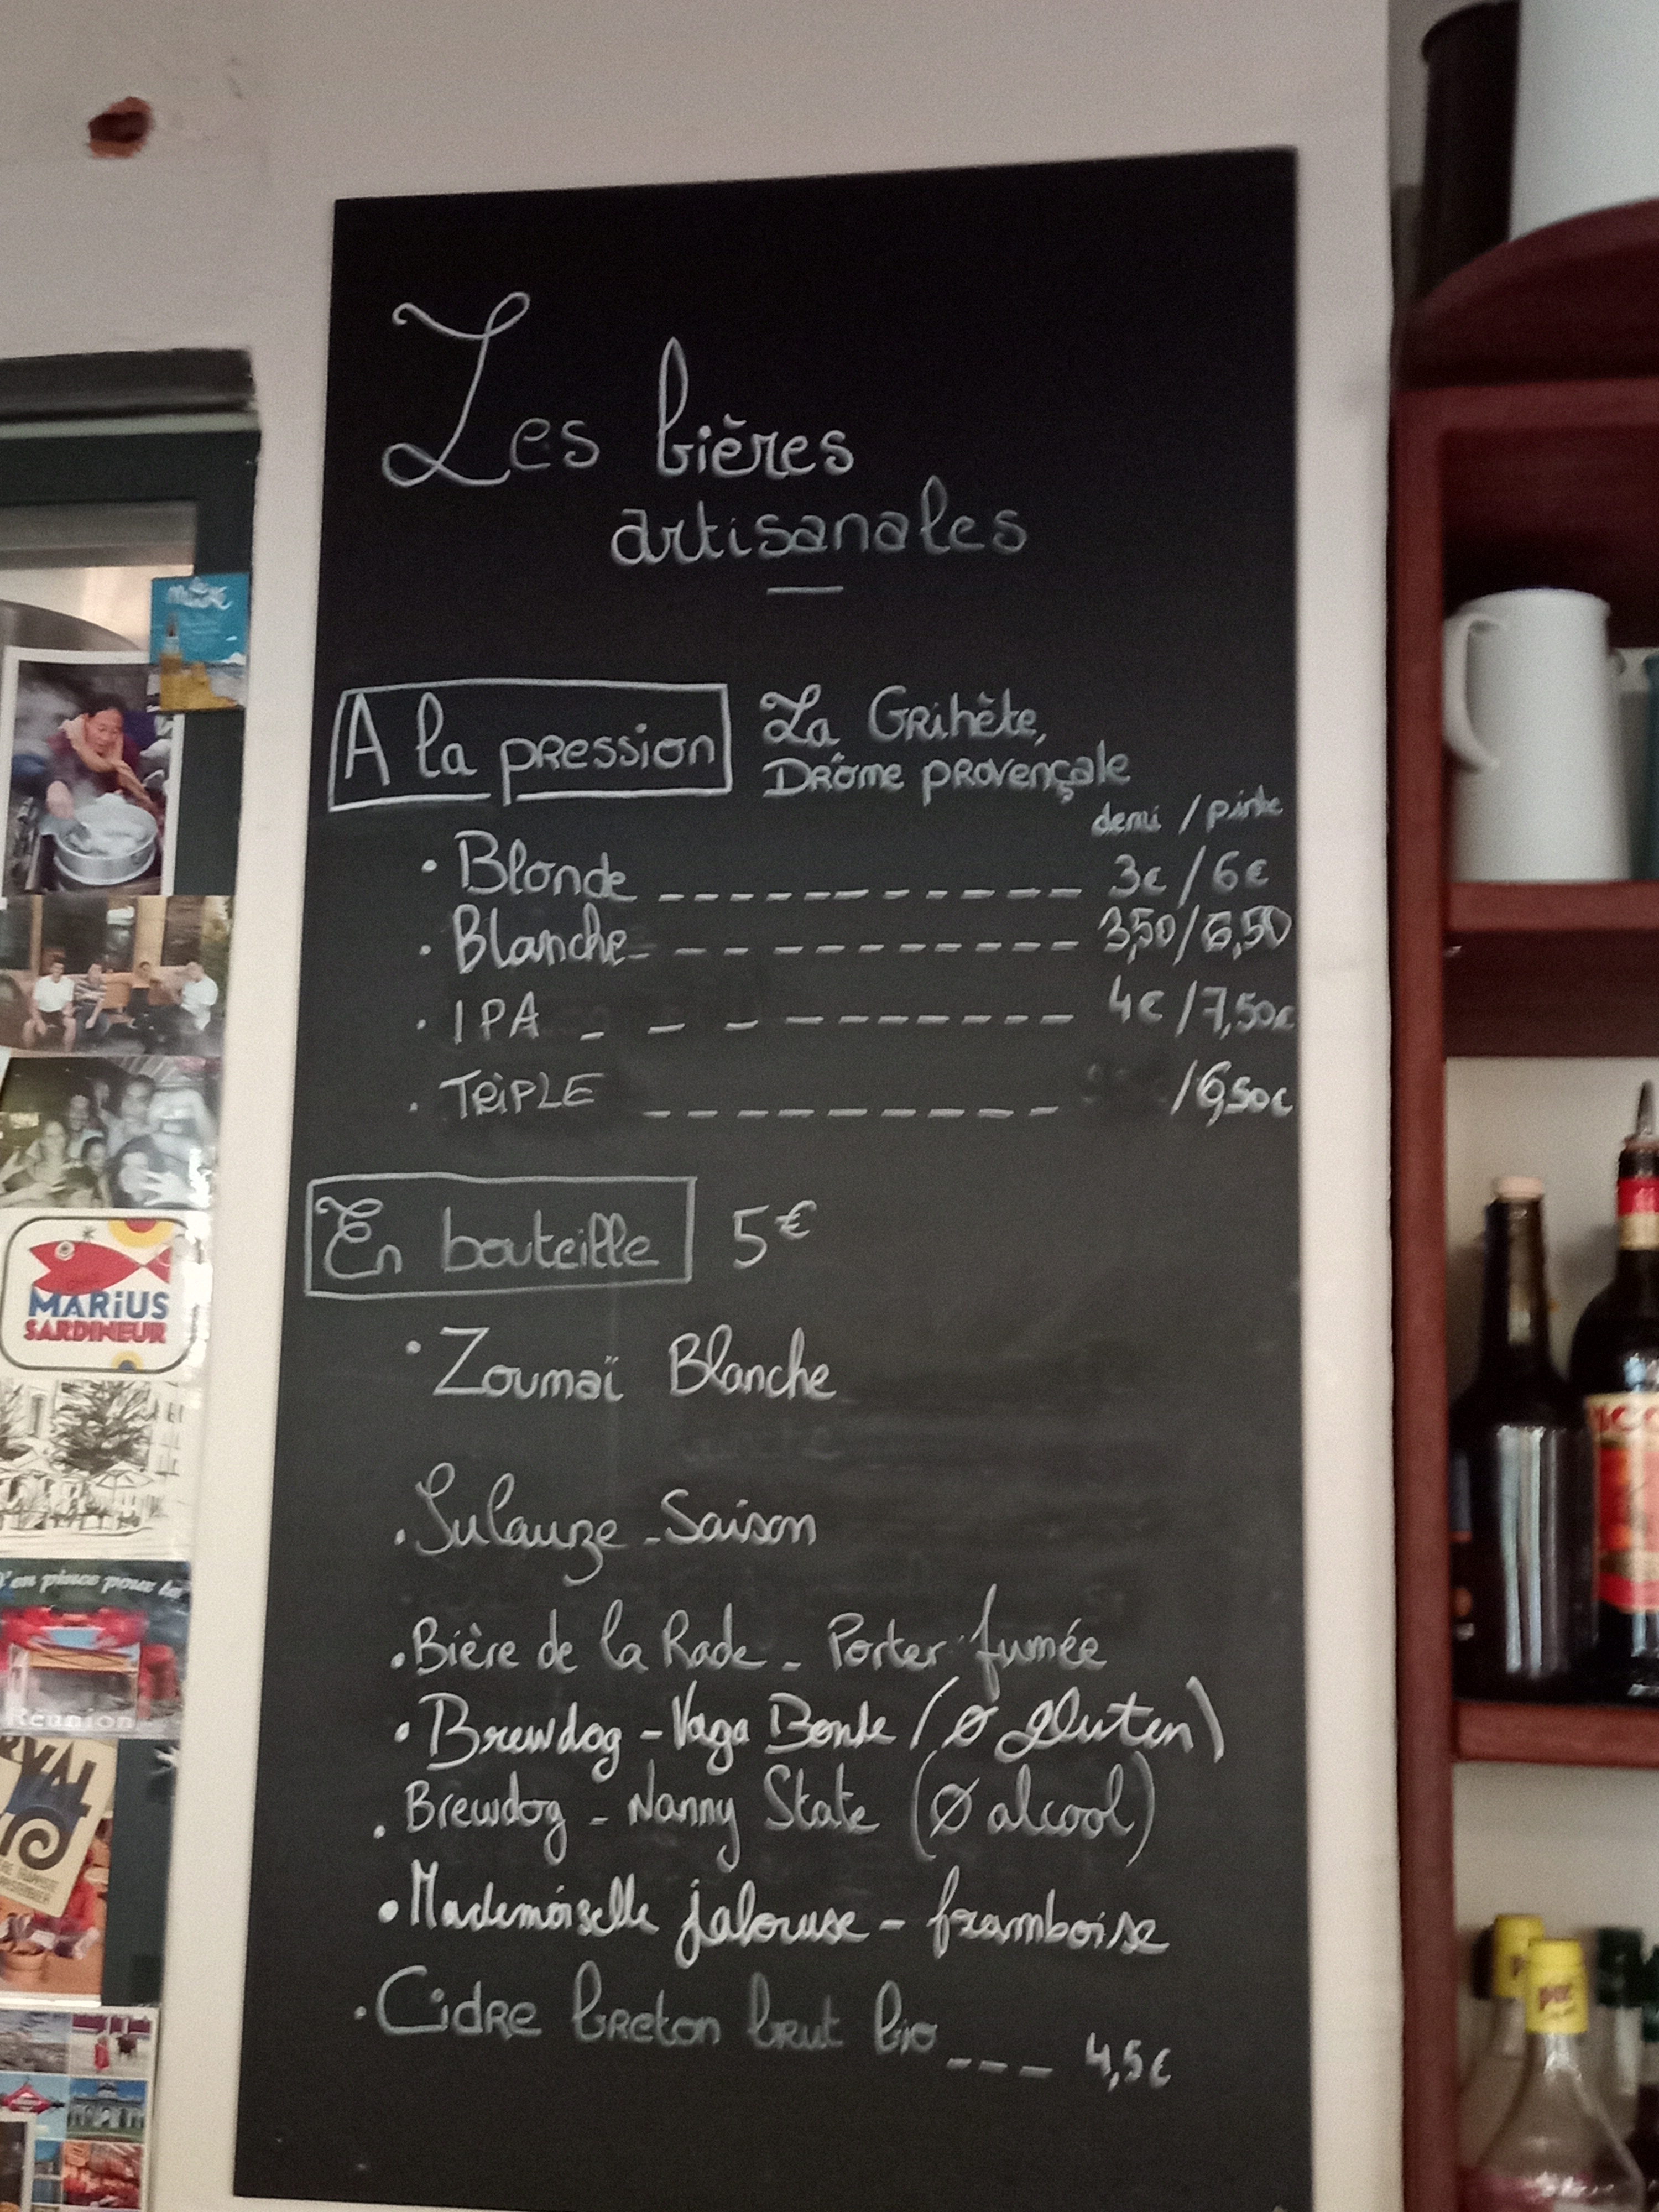 Les bières
artisanales
A la pression
La Grihète,
Drôme provençale
demi / pinte
· Blonde ------------ 3€ / 6€
· Blanche ----------- 3,50/6,50
· IPA ----------- 4€ /7,50€
· TRIPLE ---------- /6,50€
En bouteille 5€
· Zoumaï Blanche
· Sulauze - Saison
· Bière de la Rade - Porter fumée
· Brewdog - Vaga Bonde (Ø gluten)
· Brewdog - Nanny State (Ø alcool)
· Mademoiselle jalouse - framboise
· Cidre breton brut bio --- 4,5€
MARiUS
SARDINEUR
J'en pince pour la
Réunion